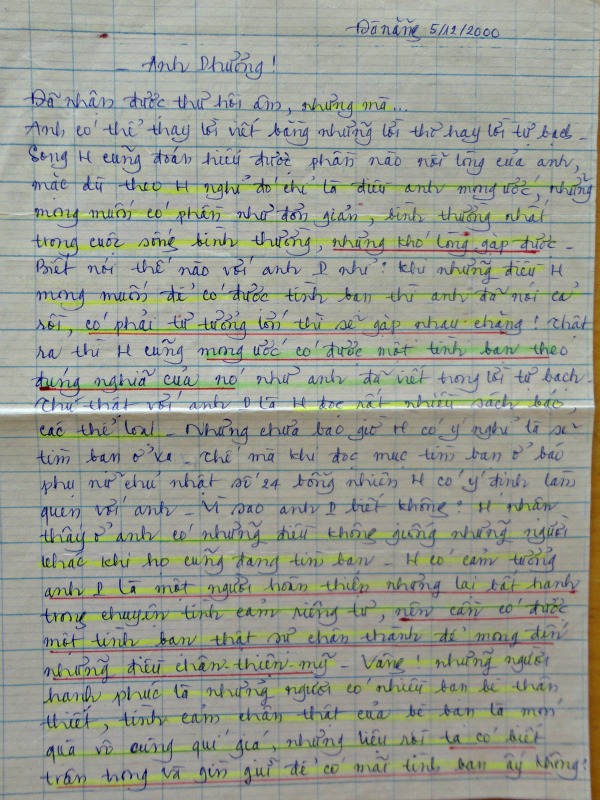 Đà nẵng 5/12/2000
Anh Phưởng!
Đã nhận được thư hồi âm, nhưng mà...
Anh có thể thay lời viết bằng những lời thơ hay lời tự bạch.
Song H cũng đoán hiểu được phần nào nỗi lòng của anh,
mặc dù theo H nghĩ đó chỉ là điều anh mong ước, những
mong muốn có phần như đơn giản, bình thường nhất
trong cuộc sống bình thường, nhưng khó lòng gặp được.
Biết nói thế nào với anh P nhỉ! khi những điều H
mong muốn để có được tình bạn thì anh đã nói cả
rồi, có phải tư tưởng lớn thì sẽ gặp nhau chăng! Thật
ra thì H cũng mong ước có được một tình bạn theo
đúng nghĩa của nó như anh đã viết trong lời tự bạch.
Thú thật với anh P là H đọc rất nhiều sách báo,
các thể loại. Nhưng chưa bao giờ H có ý nghĩ là sẽ
tìm bạn ở xa. Thế mà khi đọc mục tìm bạn ở báo
phụ nữ chủ nhật số 24 bỗng nhiên H có ý định làm
quen với anh. Vì sao anh P biết không? H nhận
thấy ở anh có những điều không giống những người
khác khi họ cũng đang tìm bạn. H có cảm tưởng
anh P là một người hoàn thiện nhưng lại bất hạnh
trong chuyện tình cảm riêng tư, nên cần có được
một tình bạn thật sự chân thành để mong đến
những điều chân-thiện-mỹ. Vâng! những người
hạnh phúc là những người có nhiều bạn bè thân
thiết, tình cảm chân thật của bè bạn là món
quà vô cùng quí giá, nhưng liệu rồi ta có biết
trân trọng và gìn giữ để có mãi tình bạn ấy không!